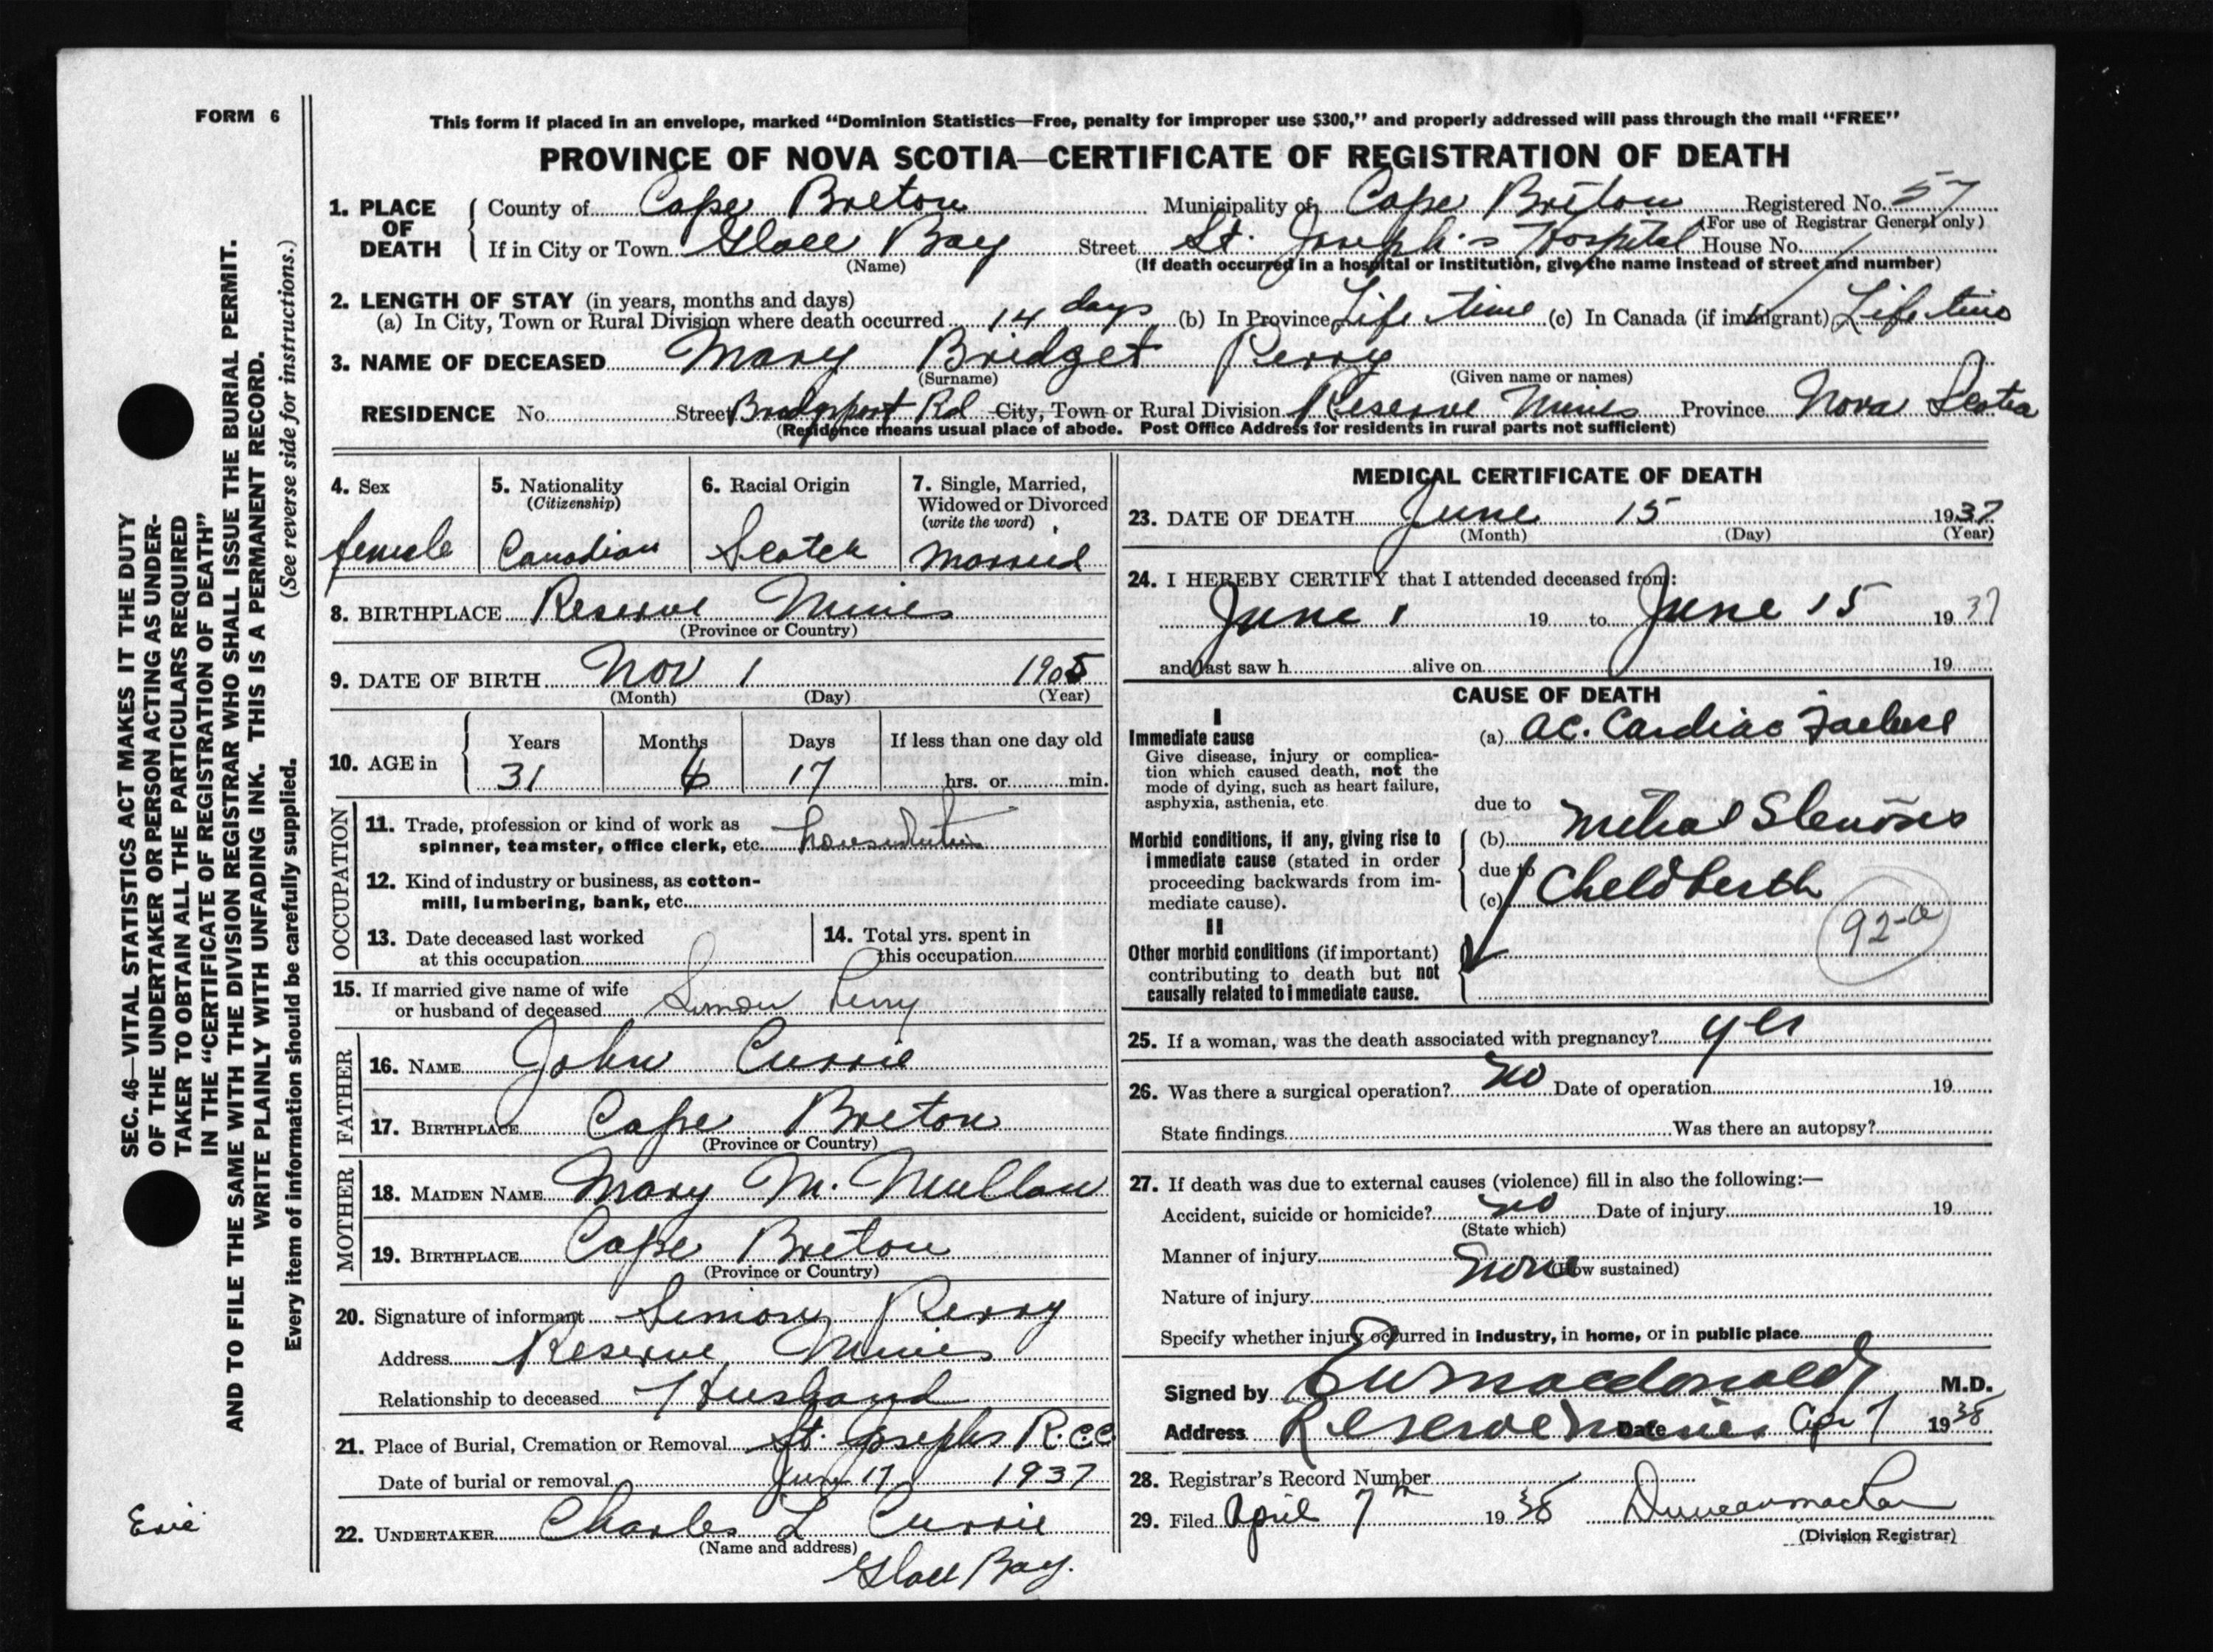 FORM 6
This form if placed in an envelope, marked "Dominion Statistics—Free, penalty for improper use $300," and properly addressed will pass through the mail "FREE"
PROVINCE OF NOVA SCOTIA—CERTIFICATE OF REGISTRATION OF DEATH
1. PLACE OF DEATH
County of Cape Breton Municipality of Cape Breton Registered No. 57
(For use of Registrar General only)
If in City or Town Glace Bay Street St. Joseph's Hospital House No.
(Name) (If death occurred in a hospital or institution, give the name instead of street and number)
2. LENGTH OF STAY (in years, months and days)
(a) In City, Town or Rural Division where death occurred 14 days (b) In Province Life time (c) In Canada (if immigrant) Life time
3. NAME OF DECEASED Mary Bridget Perry
(Surname) (Given name or names)
RESIDENCE No. Street Bridgeport Rd City, Town or Rural Division Reserve Mines Province Nova Scotia
(Residence means usual place of abode. Post Office Address for residents in rural parts not sufficient)
4. Sex
female
5. Nationality
(Citizenship)
Canadian
6. Racial Origin
Scotch
7. Single, Married,
Widowed or Divorced
(write the word)
Married
8. BIRTHPLACE Reserve Mines
(Province or Country)
9. DATE OF BIRTH Nov 1 1905
(Month) (Day) (Year)
10. AGE in
Years Months Days If less than one day old
31 6 17 hrs. or min.
OCCUPATION
11. Trade, profession or kind of work as
spinner, teamster, office clerk, etc.
12. Kind of industry or business, as cotton-
mill, lumbering, bank, etc.
13. Date deceased last worked
at this occupation
14. Total yrs. spent in
this occupation
15. If married give name of wife
or husband of deceased Simon Perry
FATHER
16. NAME John Currie
17. BIRTHPLACE Cape Breton
(Province or Country)
MOTHER
18. MAIDEN NAME Mary M. Mullan
19. BIRTHPLACE Cape Breton
(Province or Country)
20. Signature of informant Simon Perry
Address Reserve Mines
Relationship to deceased Husband
21. Place of Burial, Cremation or Removal St. Josephs R.CC
Date of burial or removal June 17 1937
22. UNDERTAKER Charles L Currie
(Name and address)
Glace Bay.
MEDICAL CERTIFICATE OF DEATH
23. DATE OF DEATH June 15 1937
(Month) (Day) (Year)
24. I HEREBY CERTIFY that I attended deceased from:
June 1 19 to June 15 1937
and last saw h alive on 19
CAUSE OF DEATH
I
Immediate cause
Give disease, injury or complica-
tion which caused death, not the
mode of dying, such as heart failure,
asphyxia, asthenia, etc.
(a) Ac. Cardiac Failure
due to
Morbid conditions, if any, giving rise to
immediate cause (stated in order
proceeding backwards from im-
mediate cause).
(b) Mitral Stenosis
due to
(c) Childbirth
92-a
II
Other morbid conditions (if important)
contributing to death but not
causally related to immediate cause.
25. If a woman, was the death associated with pregnancy? yes
26. Was there a surgical operation? no Date of operation 19
State findings Was there an autopsy?
27. If death was due to external causes (violence) fill in also the following:—
Accident, suicide or homicide? no Date of injury 19
(State which)
Manner of injury none
(How sustained)
Nature of injury
Specify whether injury occurred in industry, in home, or in public place
Signed by Macdonald M.D.
Address Reserve Mines Date Apr 7 1938
28. Registrar's Record Number
29. Filed April 7th 1938 Duncan
(Division Registrar)
SEC. 46—VITAL STATISTICS ACT MAKES IT THE DUTY
OF THE UNDERTAKER OR PERSON ACTING AS UNDER-
TAKER TO OBTAIN ALL THE PARTICULARS REQUIRED
IN THE "CERTIFICATE OF REGISTRATION OF DEATH"
AND TO FILE THE SAME WITH THE DIVISION REGISTRAR WHO SHALL ISSUE THE BURIAL PERMIT.
WRITE PLAINLY WITH UNFADING INK. THIS IS A PERMANENT RECORD.
Every item of information should be carefully supplied.
(See reverse side for instructions.)